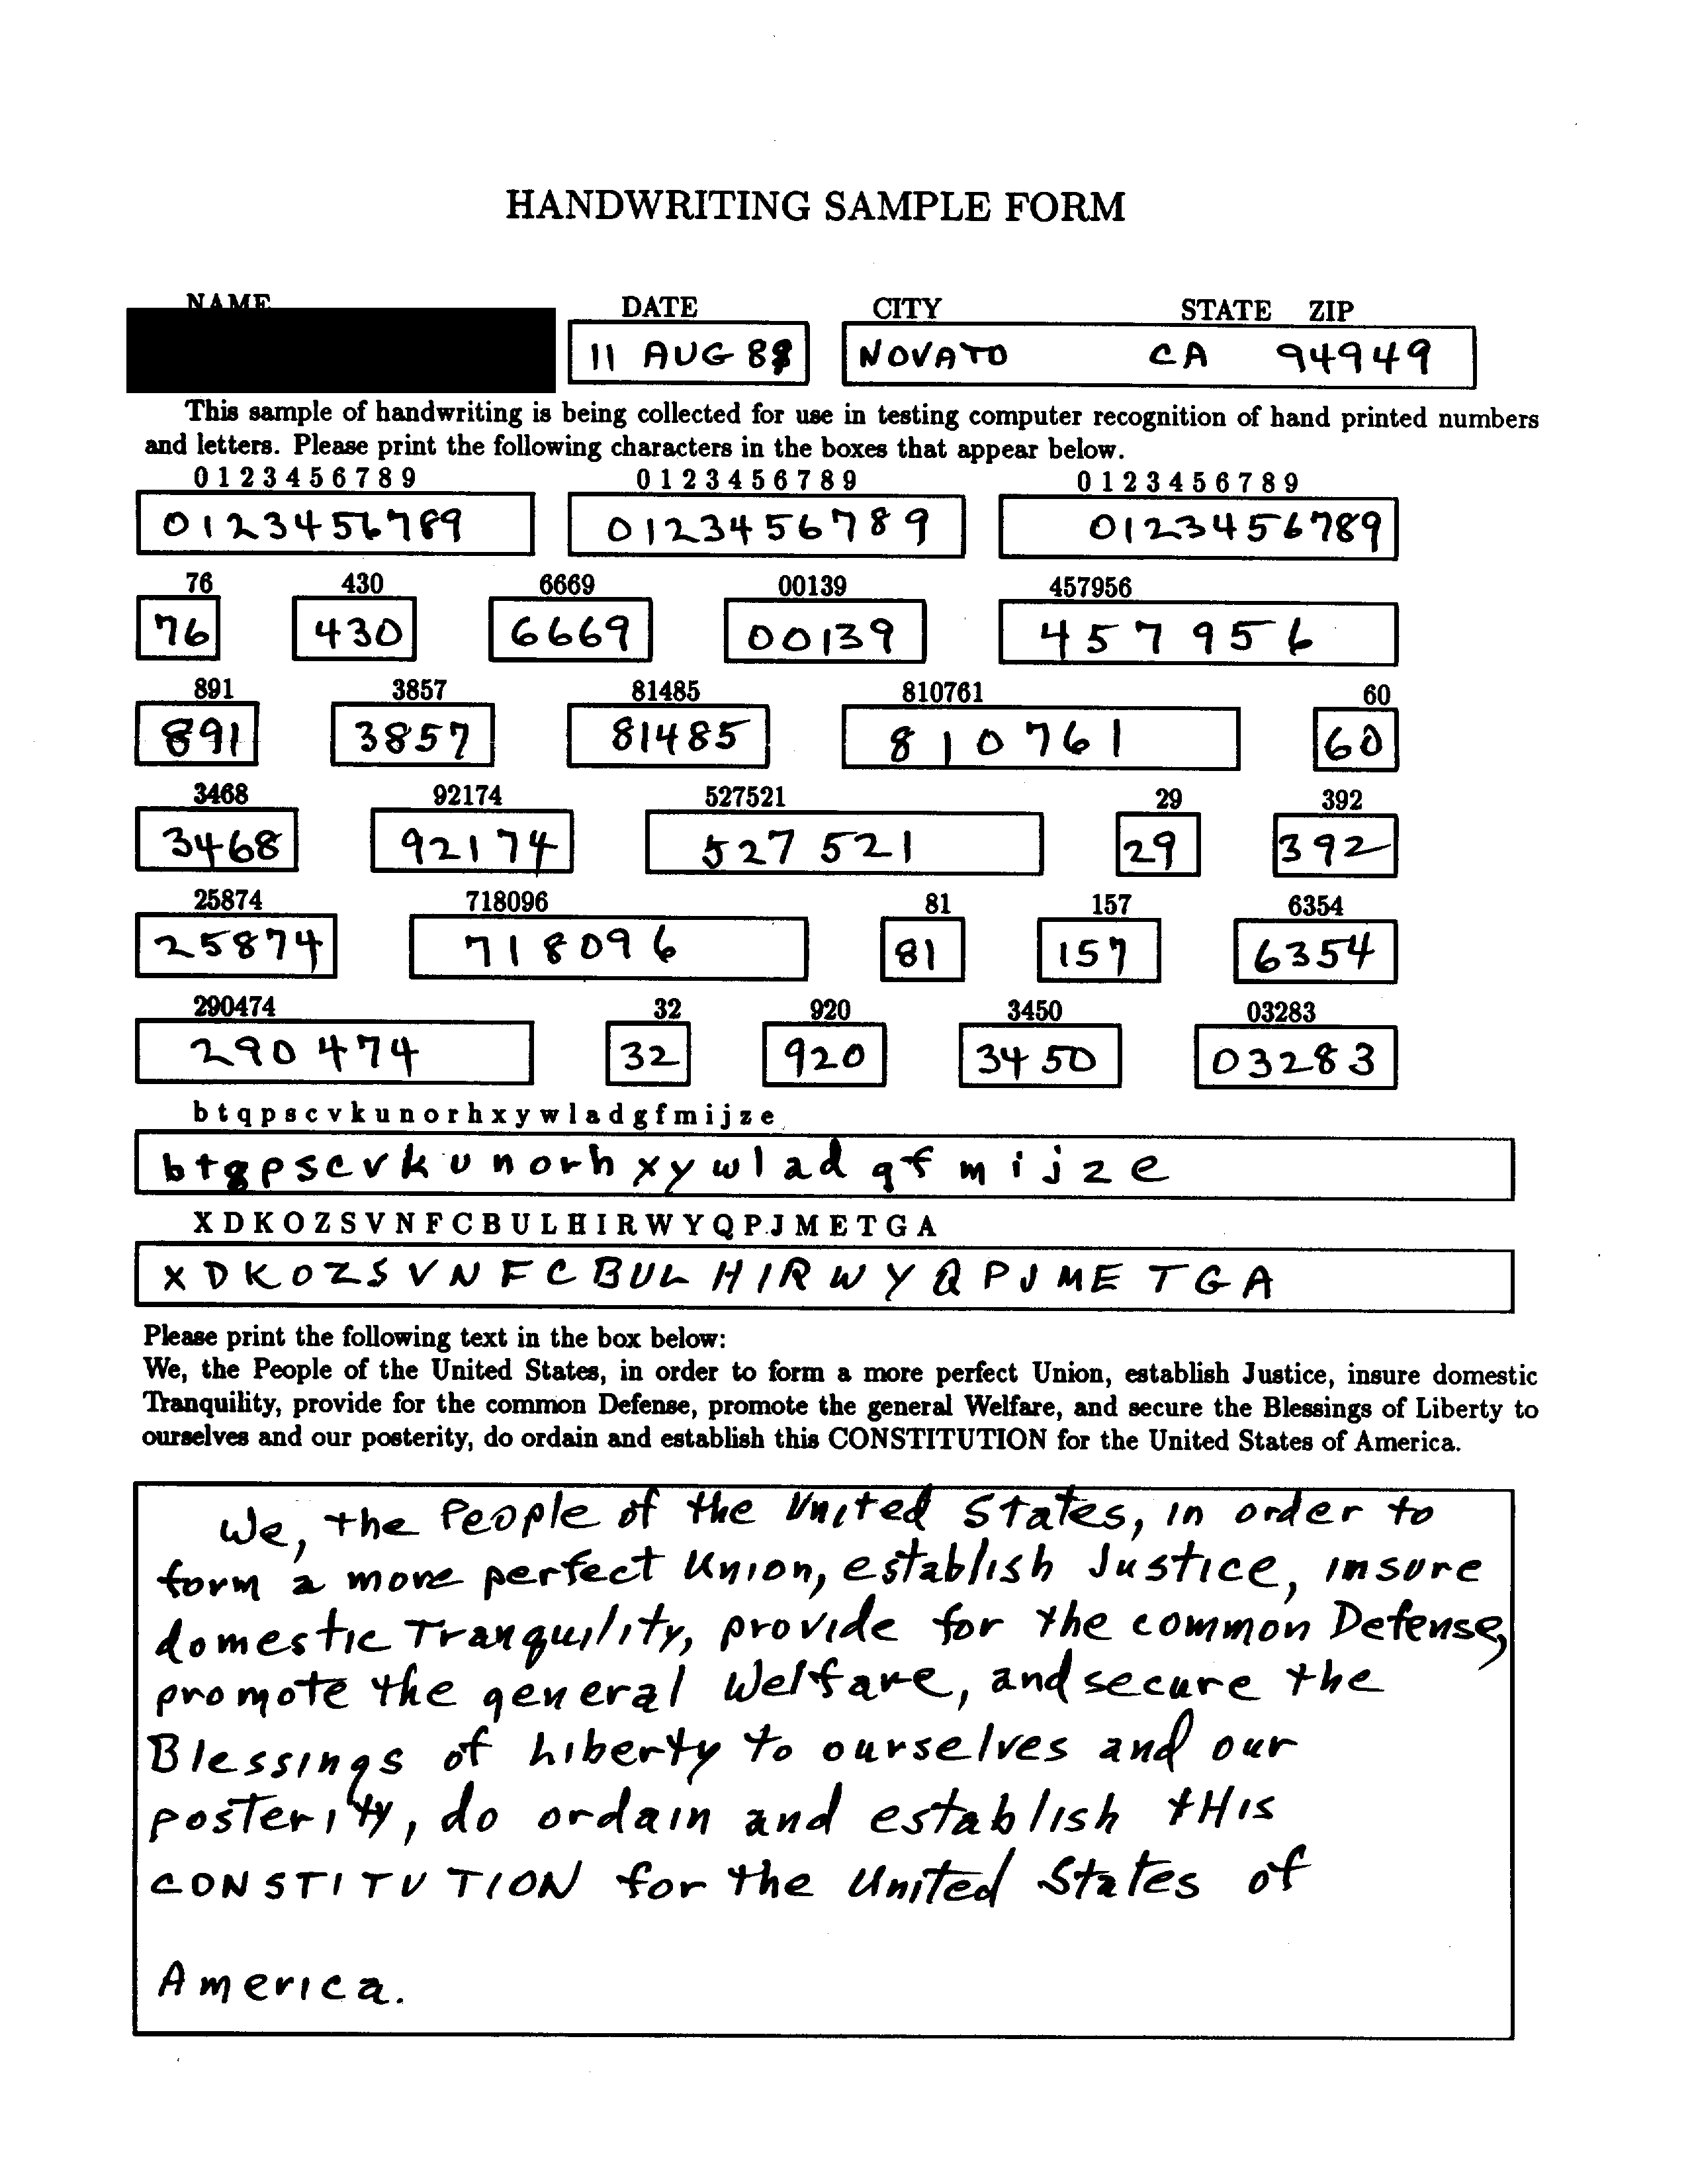 HANDWRITING SAMPLE FORM
NAME DATE CITY STATE ZIP
11 AUG 89 NOVATO CA 94949
This sample of handwriting is being collected for use in testing computer recognition of hand printed numbers
and letters. Please print the following characters in the boxes that appear below.
0 1 2 3 4 5 6 7 8 9 0 1 2 3 4 5 6 7 8 9 0 1 2 3 4 5 6 7 8 9
0123456789 0123456789 0123456789
76 430 6669 00139 457956
76 430 6669 00139 457956
891 3857 81485 810761 60
891 3857 81485 810761 60
3468 92174 527521 29 392
3468 92174 527521 29 392
25874 718096 81 157 6354
25874 718096 81 157 6354
290474 32 920 3450 03283
290474 32 920 3450 03283
b t q p s c v k u n o r h x y w l a d g f m i j z e
b t g p s c v k u n o r h x y w l a d g f m i j z e
X D K O Z S V N F C B U L H I R W Y Q P J M E T G A
X D K O Z S V N F C B U L H I R W Y Q P J M E T G A
Please print the following text in the box below:
We, the People of the United States, in order to form a more perfect Union, establish Justice, insure domestic
Tranquility, provide for the common Defense, promote the general Welfare, and secure the Blessings of Liberty to
ourselves and our posterity, do ordain and establish this CONSTITUTION for the United States of America.
We, the People of the United States, in order to
form a more perfect Union, establish Justice, insure
domestic Tranquility, provide for the common Defense,
promote the general Welfare, and secure the
Blessings of Liberty to ourselves and our
posterity, do ordain and establish tHis
CONSTITUTION for the United States of
America.